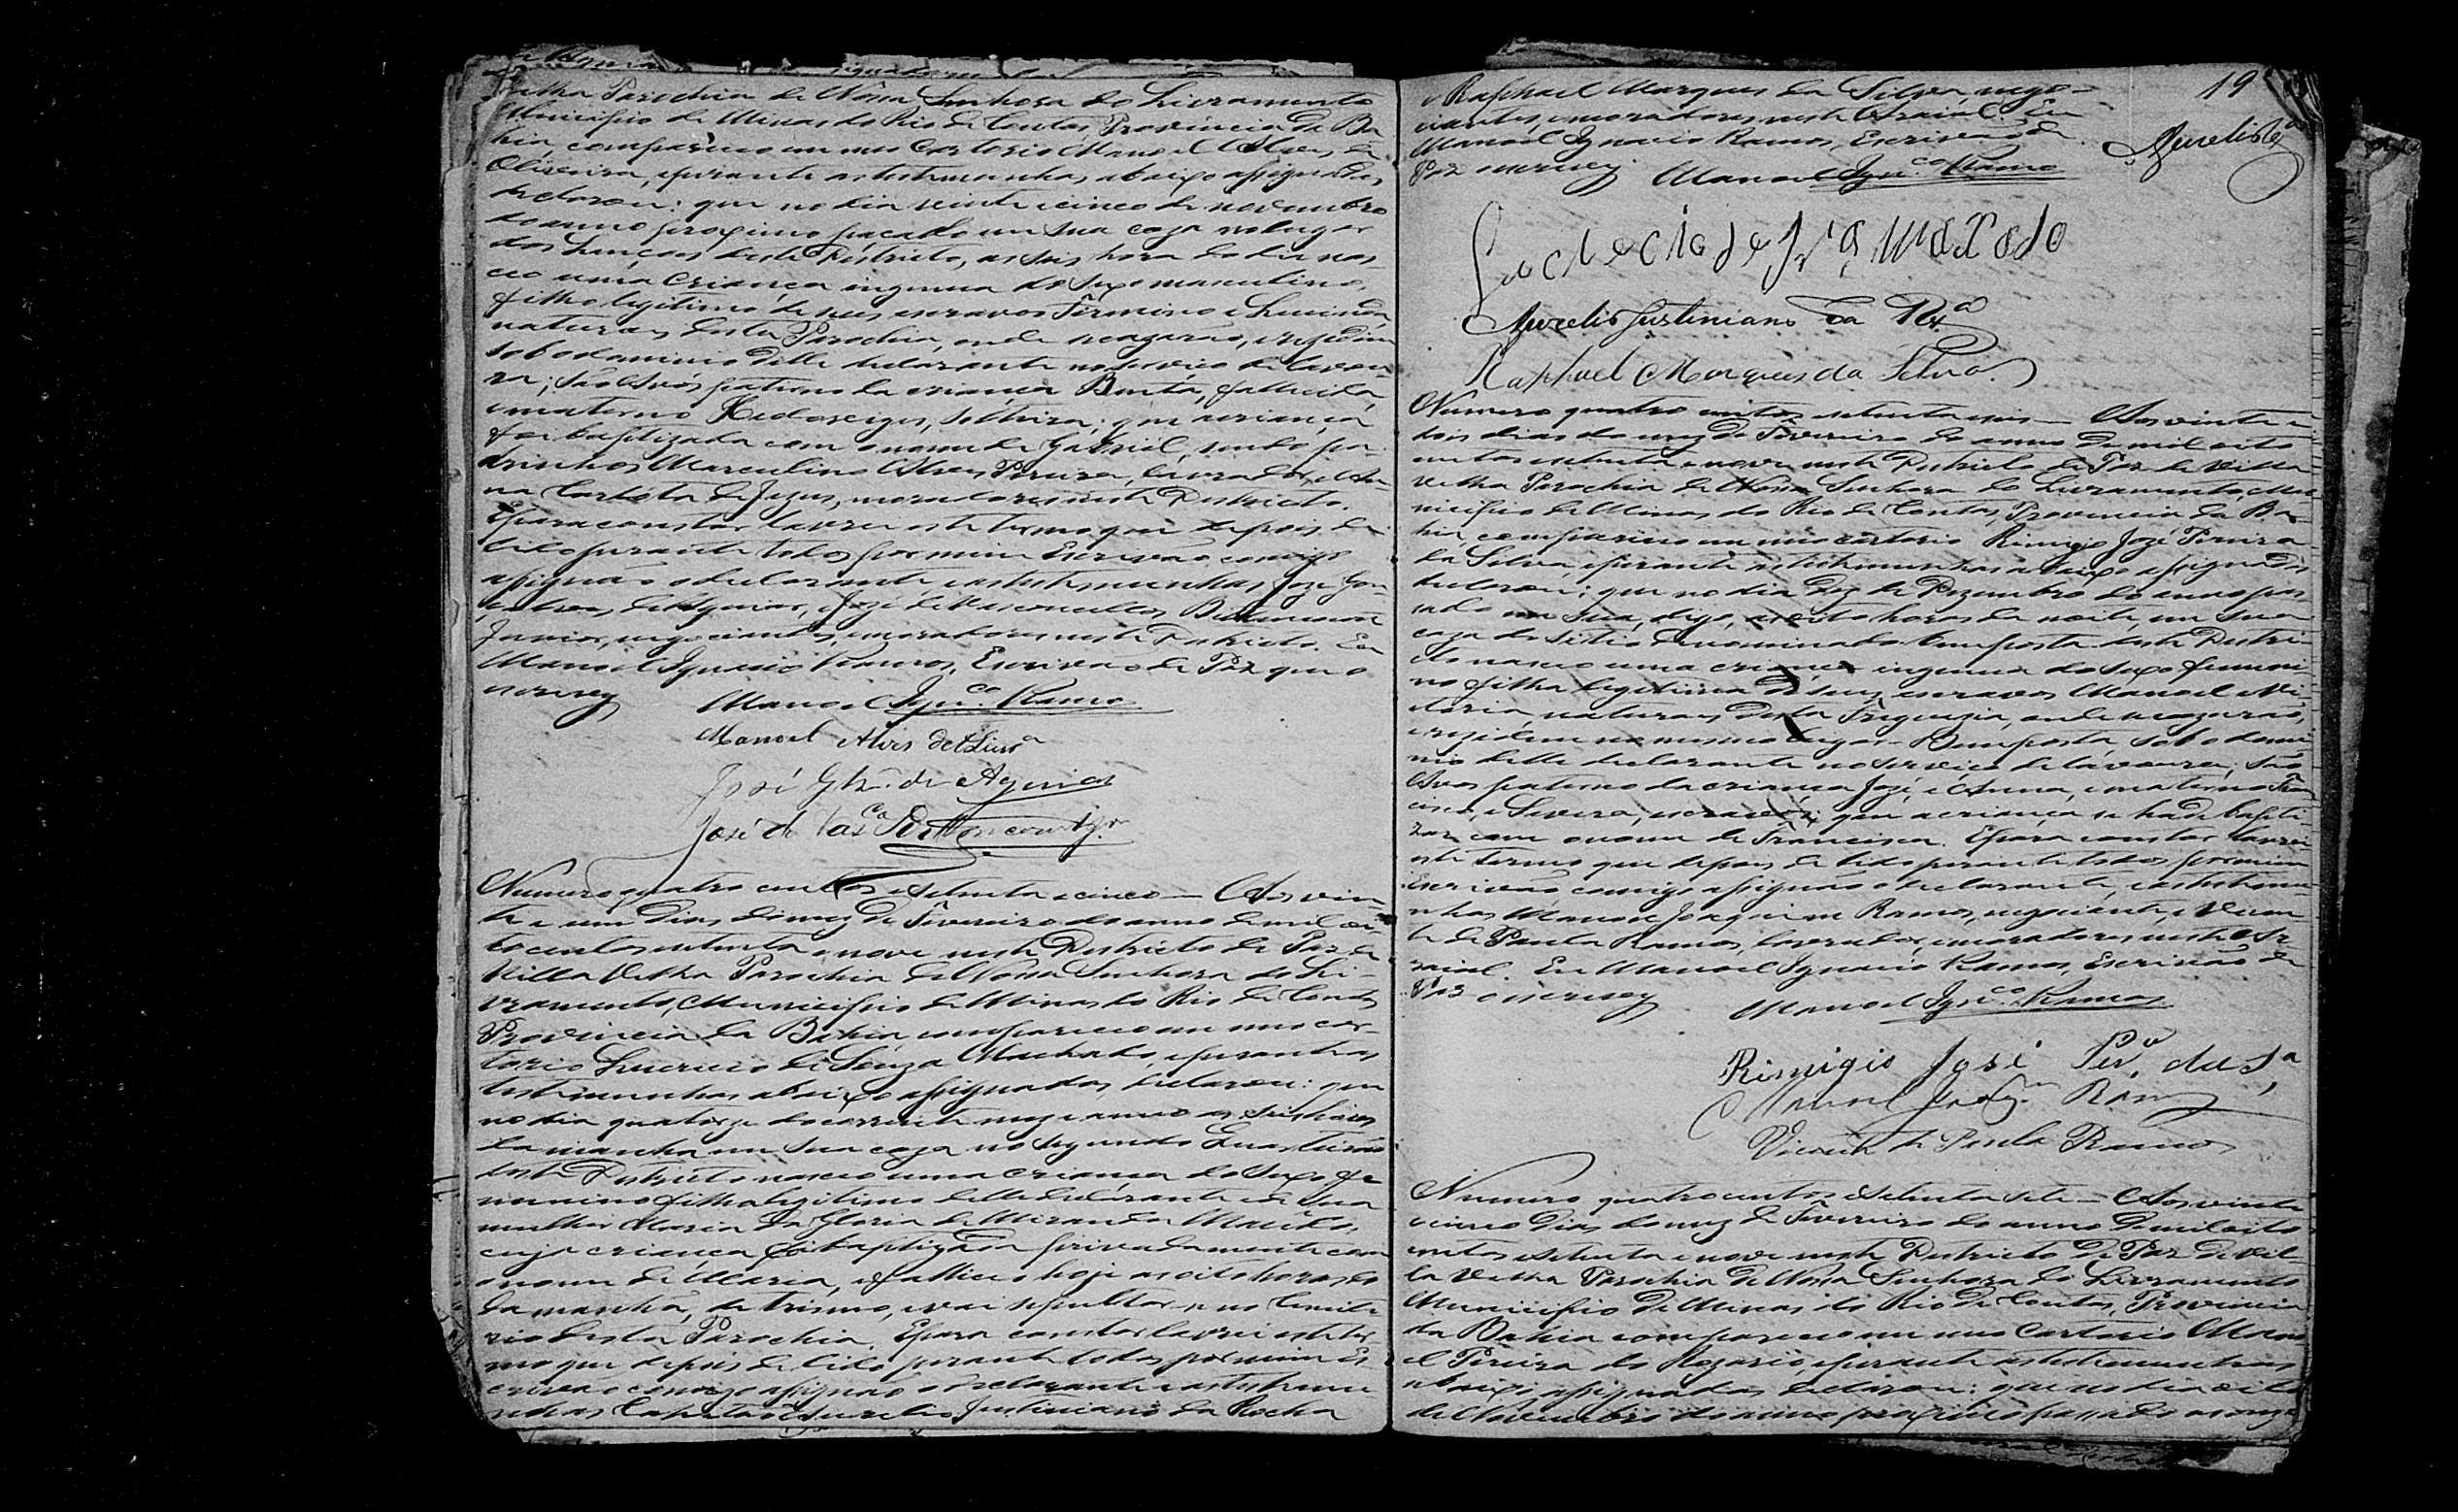 Velha Parochia de Nossa Senhora do Livramento
Municipio de Minas do Rio de Contas, Provincia da Ba-
hia, compareceo em meo Cartorio Manoel Alves de
Oliveira, e perante as testemunhas abaixo assignadas,
declarou: que no dia vinte e cinco de novembro
do anno proximo passado em sua caza no lugar
dos Lençoes deste Districto, as seis hora do dia nas-
ceo uma criança ingenua do sexo masculino,
filho legitimo de seus escravos Firmino e Lucinda,
naturaes desta Parochia, onde se cazarão, e residem
sob o dominio delle declarante no serviço de lavou-
ra; são Avós paterno da criança Benta, fallecida,
e materno solteira; que a criança
foi baptizada com o nome de Gabriel, sendo pa-
drinhos Marculino Alves Pereira, lavrador, e An-
na Carlota de Jezus, moradores neste Districto.
E para constar lavrei este termo que depois de
lido perante todos por mim Escrivão comigo
assignão o declarante, e as testemunhas José Gon-
çalves de Aguiar, e José de Vasconcellos Bitencourt
Junior, negociantes, e moradores neste Districto. Eu
Manoel Ignacio Ramos, Escrivão de Paz que o
escrevy
Manoel Ignco Ramos
Manoel Alves de Olivra
José Glz. de Aguiar
José de Vascos Bittencourt Jor.
Numero quatro centos e setenta e cinco — Aos vin-
te e um dias do mez de Fevereiro do anno de mil oi-
to centos setenta e nove neste Districto de Paz de
Villa Velha Parochia de Nossa Senhora do Li-
vramento, Municipio de Minas do Rio de Contas
Provincia da Bahia compareceo em meo car-
torio Lucrecio de Souza Machado, e perante as
testemunhas abaixo assignadas, declarou: que
no dia quatorze do corrente mez e anno as seis horas
da manhã em sua caza no segundo Quarteirão
deste Districto nasceo uma criança do sexo fe-
menino filha legitima delle declarante e de sua
mulher Maria da Gloria de Miranda Machado,
cuja criança foi baptizada privadamente com
o nome de Maria, e falleceo hoje as oito horas do
da manhã, de trismo, e vai sepultar-se no Cemite-
rio desta Parochia. E para constar lavrei este ter-
mo que depois de lido perante todos por mim Es-
crivão comigo assignão o declarante e as testemu-
nhas Capitão Aurelio Justiniano da Rocha
19
Aurelio Ra
e Raphael Marques da Silva, nego-
ciantes, e moradores neste Arraial. Eu
Manoel Ignacio Ramos, Escrivão de
Paz escrevy
Manoel Ignco Ramos
Lucrecio de Sza Maxado
Aurelio Justiniano da Rxa
Raphael Marques da Silva.
Numero quatro centos setenta e seis — Aos vinte e
dois dias do mez de Fevereiro do anno de mil oito
centos setenta e nove neste Districto de Paz de Villa
Velha Parochia de Nossa Senhora do Livramento, Mu-
nicipio de Minas do Rio de Contas, Provincia da Ba-
hia, compareceo em meo cartorio Rimigio José Pereira
da Silva, e perante as testemunhas abaixo assignadas
declarou; que no dia dez de Dezembro do anno pas-
sado em sua, digo, as oito horas da noite, em sua
caza do sitio denominado Composta deste Distri-
cto nasceo uma criança ingenua do sexo femeni-
no filha legitima de seus escravos Manoel e Vi-
ctoria, naturaes desta Freguezia, onde se cazarão,
e residem no mesmo lugar sob o domi-
nio delle declarante no serviço de lavoura; são
Avos paterno da criança José, e Anna, e materno Fran-
cisco, e Severa, escravos; que a criança se hade bapti-
zar com o nome de Francisca. E para constar lavrei
este termo que depois de lido perante todos por mim
Escrivão comigo assignão o declarante, e as testemu-
nhas Manoel Joaquim Ramos, negociante, e Vicen-
te de Paula Ramos, lavrador, e moradores neste Ar-
raial. Eu Manoel Ignacio Ramos, Escrivão de
Paz o escrevy
Manoel Ignco Ramos
Rimigio José Pera da Sa
Manoel Joaqm Ramos
Vicente de Paula Ramos
Numero quatro centos e setenta e sete — Aos vinte
e cinco dias do mez de Fevereiro do anno de mil oito
centos setenta e nove neste Districto de Paz de Vil-
la Velha Parochia de Nossa Senhora do Livramento
Municipio de Minas do Rio de Contas, Provincia
da Bahia compareceo em meo Cartorio Mano-
el Pereira do Rozario, e perante as testemunhas
abaixo assignadas declarou: que no dia oito
de Novembro do anno proximo passado as onze